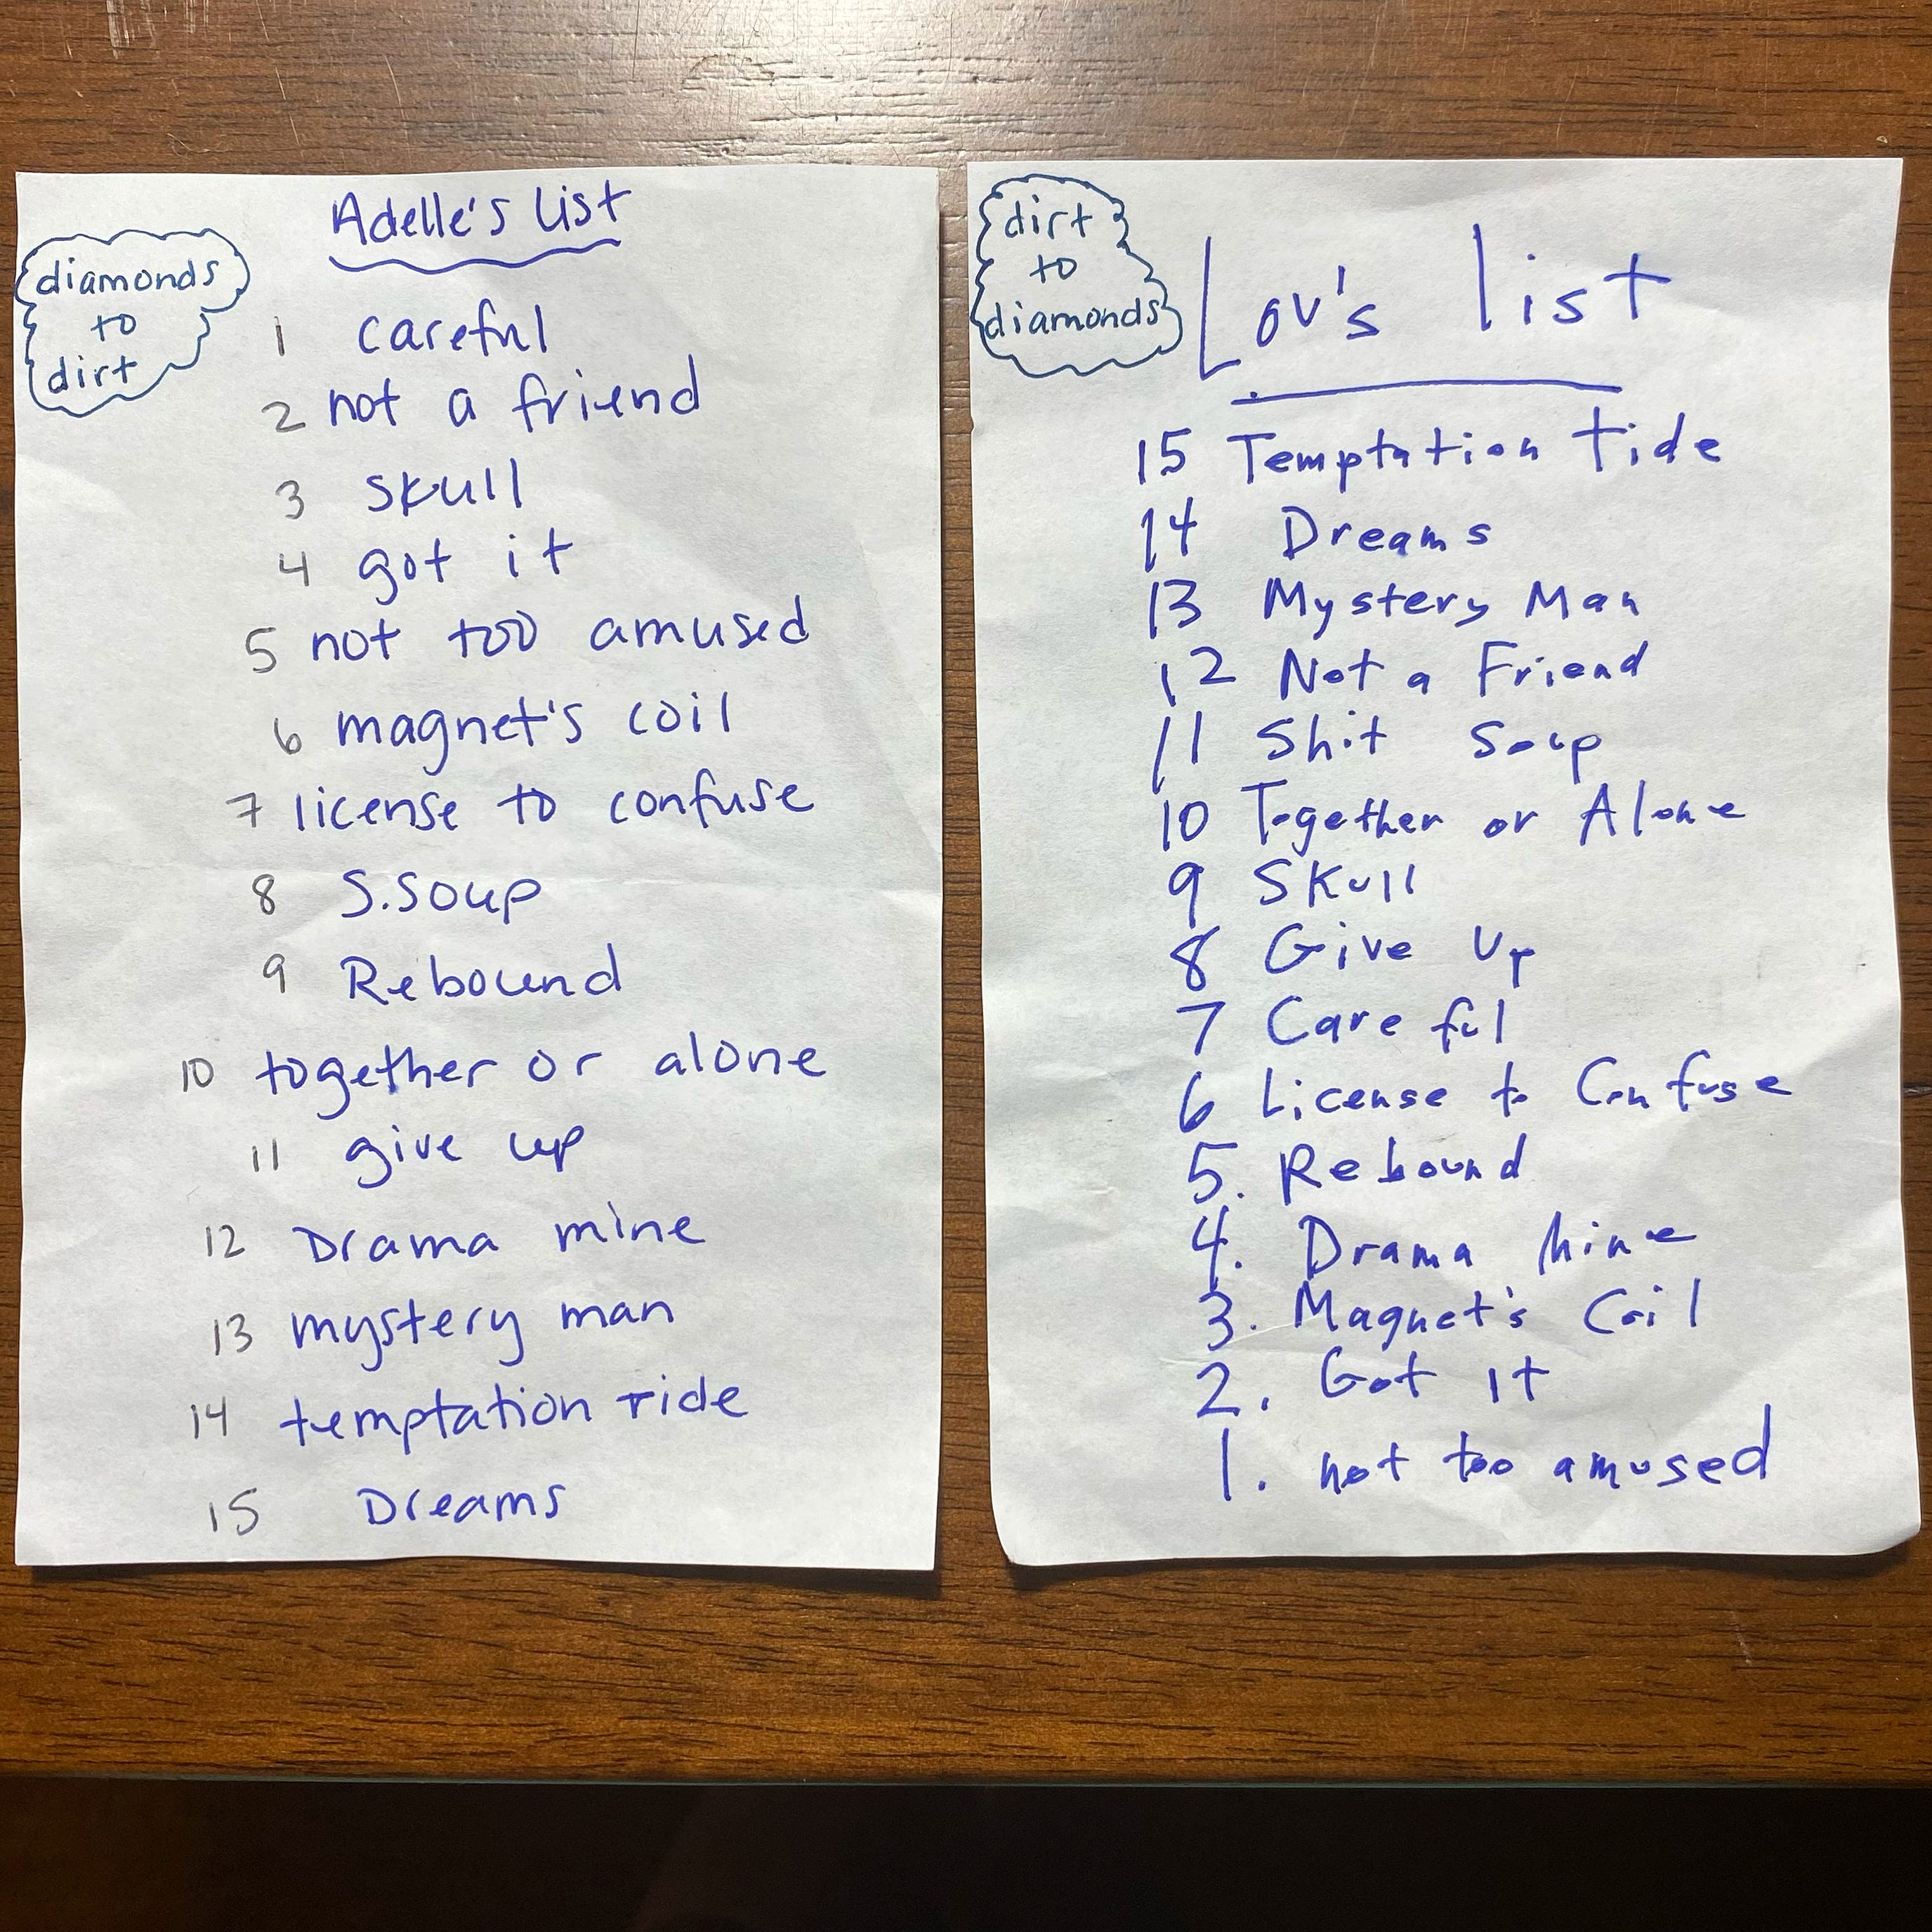 Adelle's List
diamonds
to
dirt
1 careful
2 not a friend
3 skull
4 got it
5 not too amused
6 magnet's coil
7 license to confuse
8 S.Soup
9 Rebound
10 together or alone
11 give up
12 Drama mine
13 mystery man
14 temptation ride
15 Dreams
dirt
to
diamonds
Lov's list
15 Temptation tide
14 Dreams
13 Mystery Man
12 Not a Friend
11 Shit Soup
10 Together or Alone
9 Skull
8 Give Up
7 Careful
6 License to Confuse
5. Rebound
4. Drama Mine
3. Magnet's Coil
2. Got it
1. not too amused